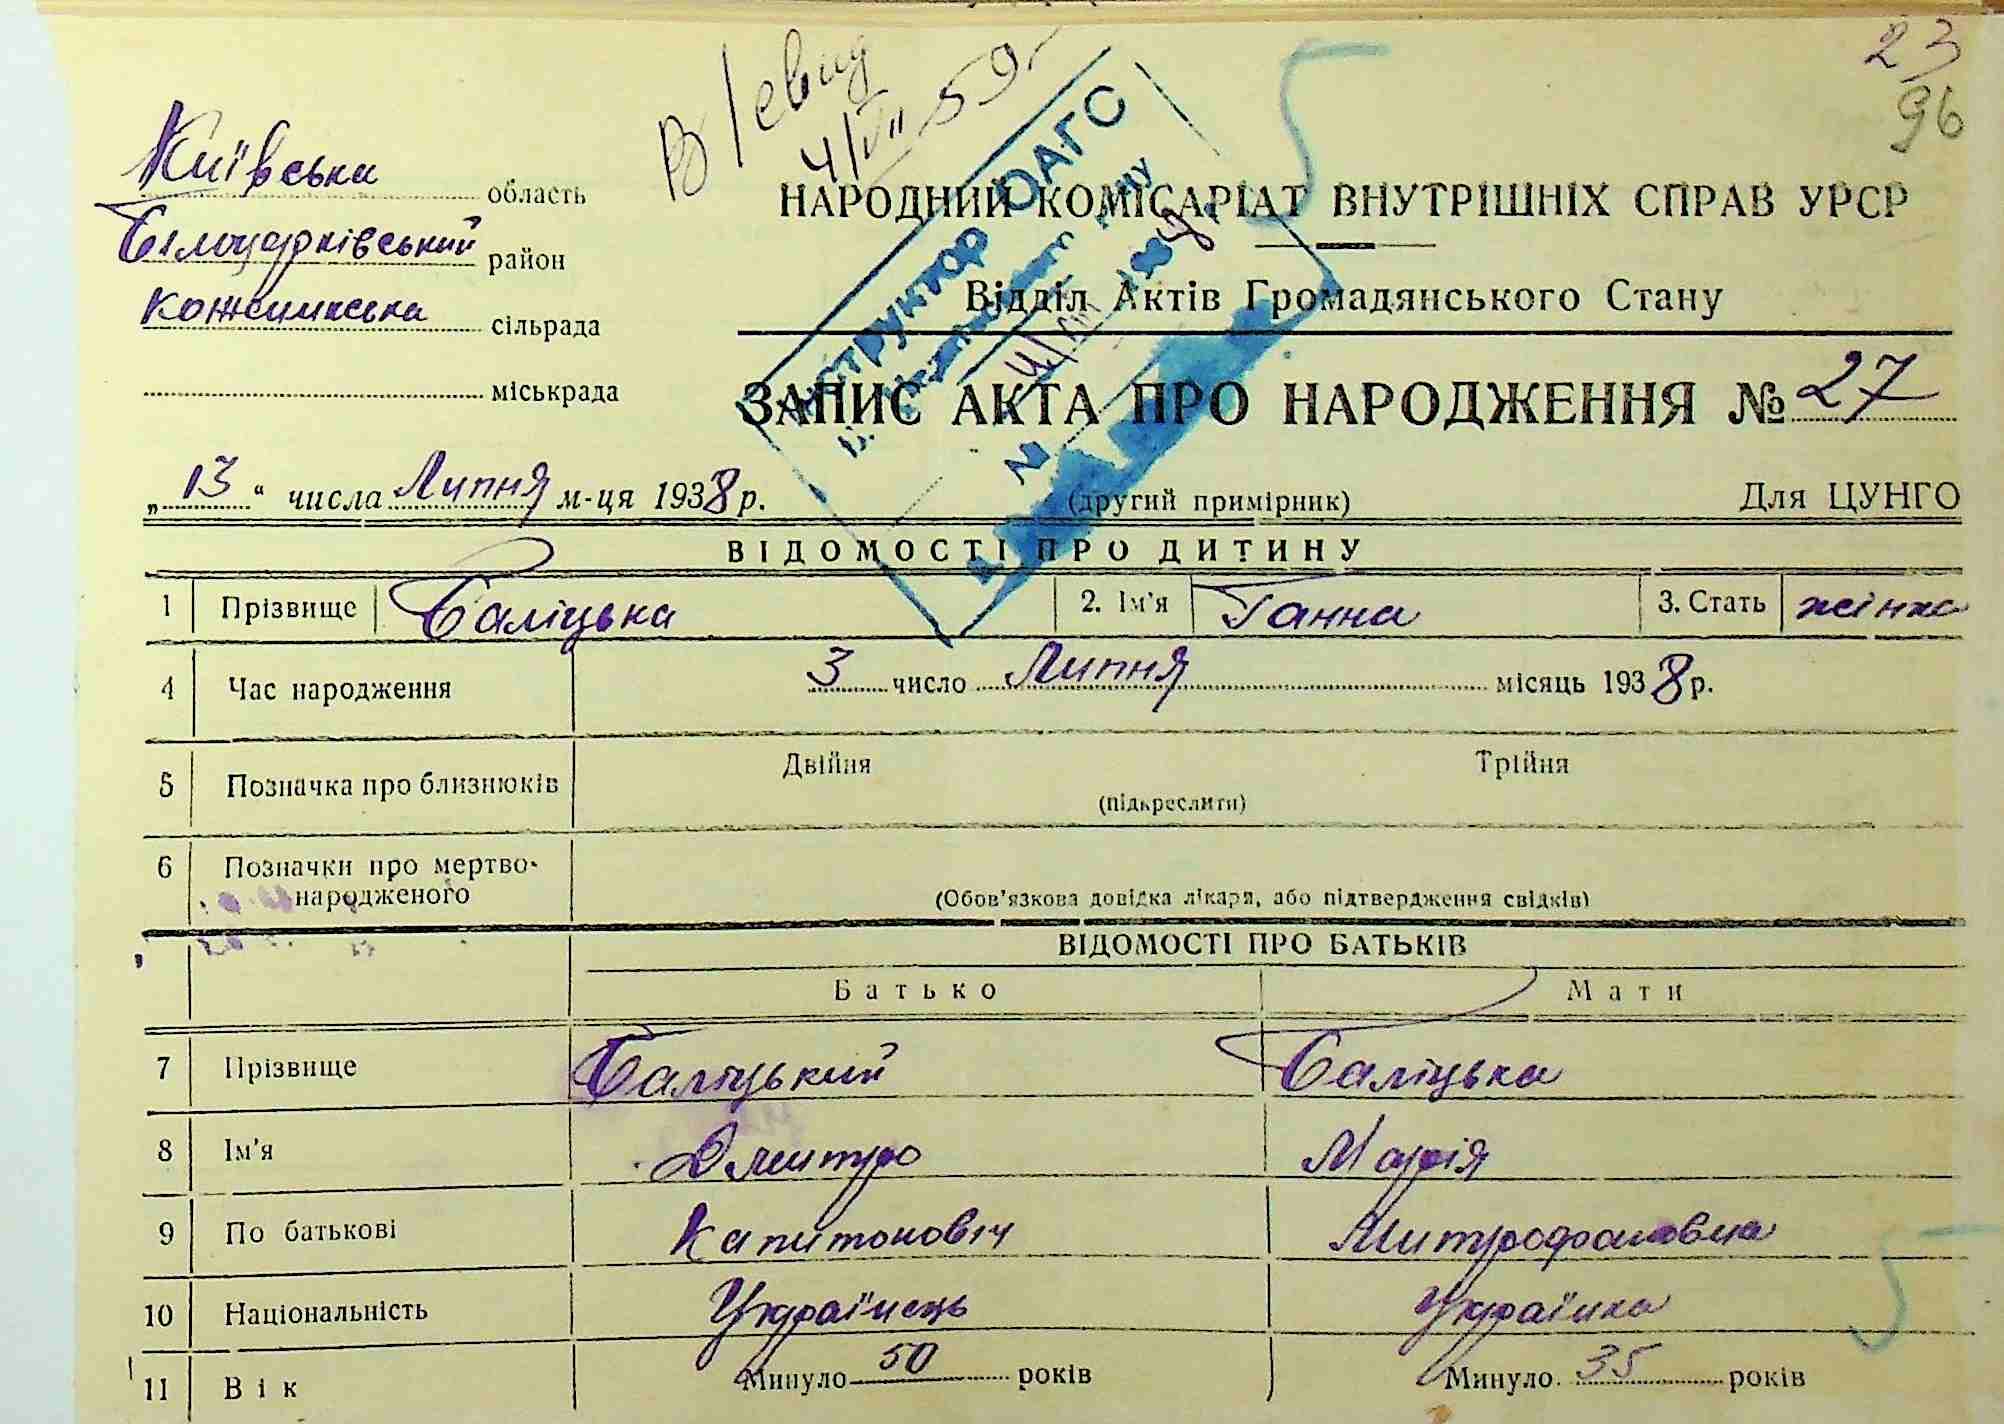 23
96
В/евид
4/VII 59
Київська область
Білоцерківський район
сільрада
міськрада
НАРОДНИЙ КОМІСАРІАТ ВНУТРІШНІХ СПРАВ УРСР
Відділ Актів Громадянського Стану
ЗАПИС АКТА ПРО НАРОДЖЕННЯ № 27
Інструктор ОАГС
№
„13“ числа Липня м-ця 1938 р.
(другий примірник)
Для ЦУНГО
ВІДОМОСТІ ПРО ДИТИНУ
1 Прізвище Баліцька 2. Ім'я Ганна 3. Стать жінка
4 Час народження 3 число Липня місяць 1938 р.
5 Позначка про близнюків Двійня Трійня
(підкреслити)
6 Позначки про мертво-
народженого (Обов'язкова довідка лікаря, або підтвердження свідків)
ВІДОМОСТІ ПРО БАТЬКІВ
Батько Мати
7 Прізвище Баліцький Баліцька
8 Ім'я Дмитро Марія
9 По батькові Капитоновіч Митрофановна
10 Національність Українець Українка
11 Вік Минуло 50 років Минуло 35 років